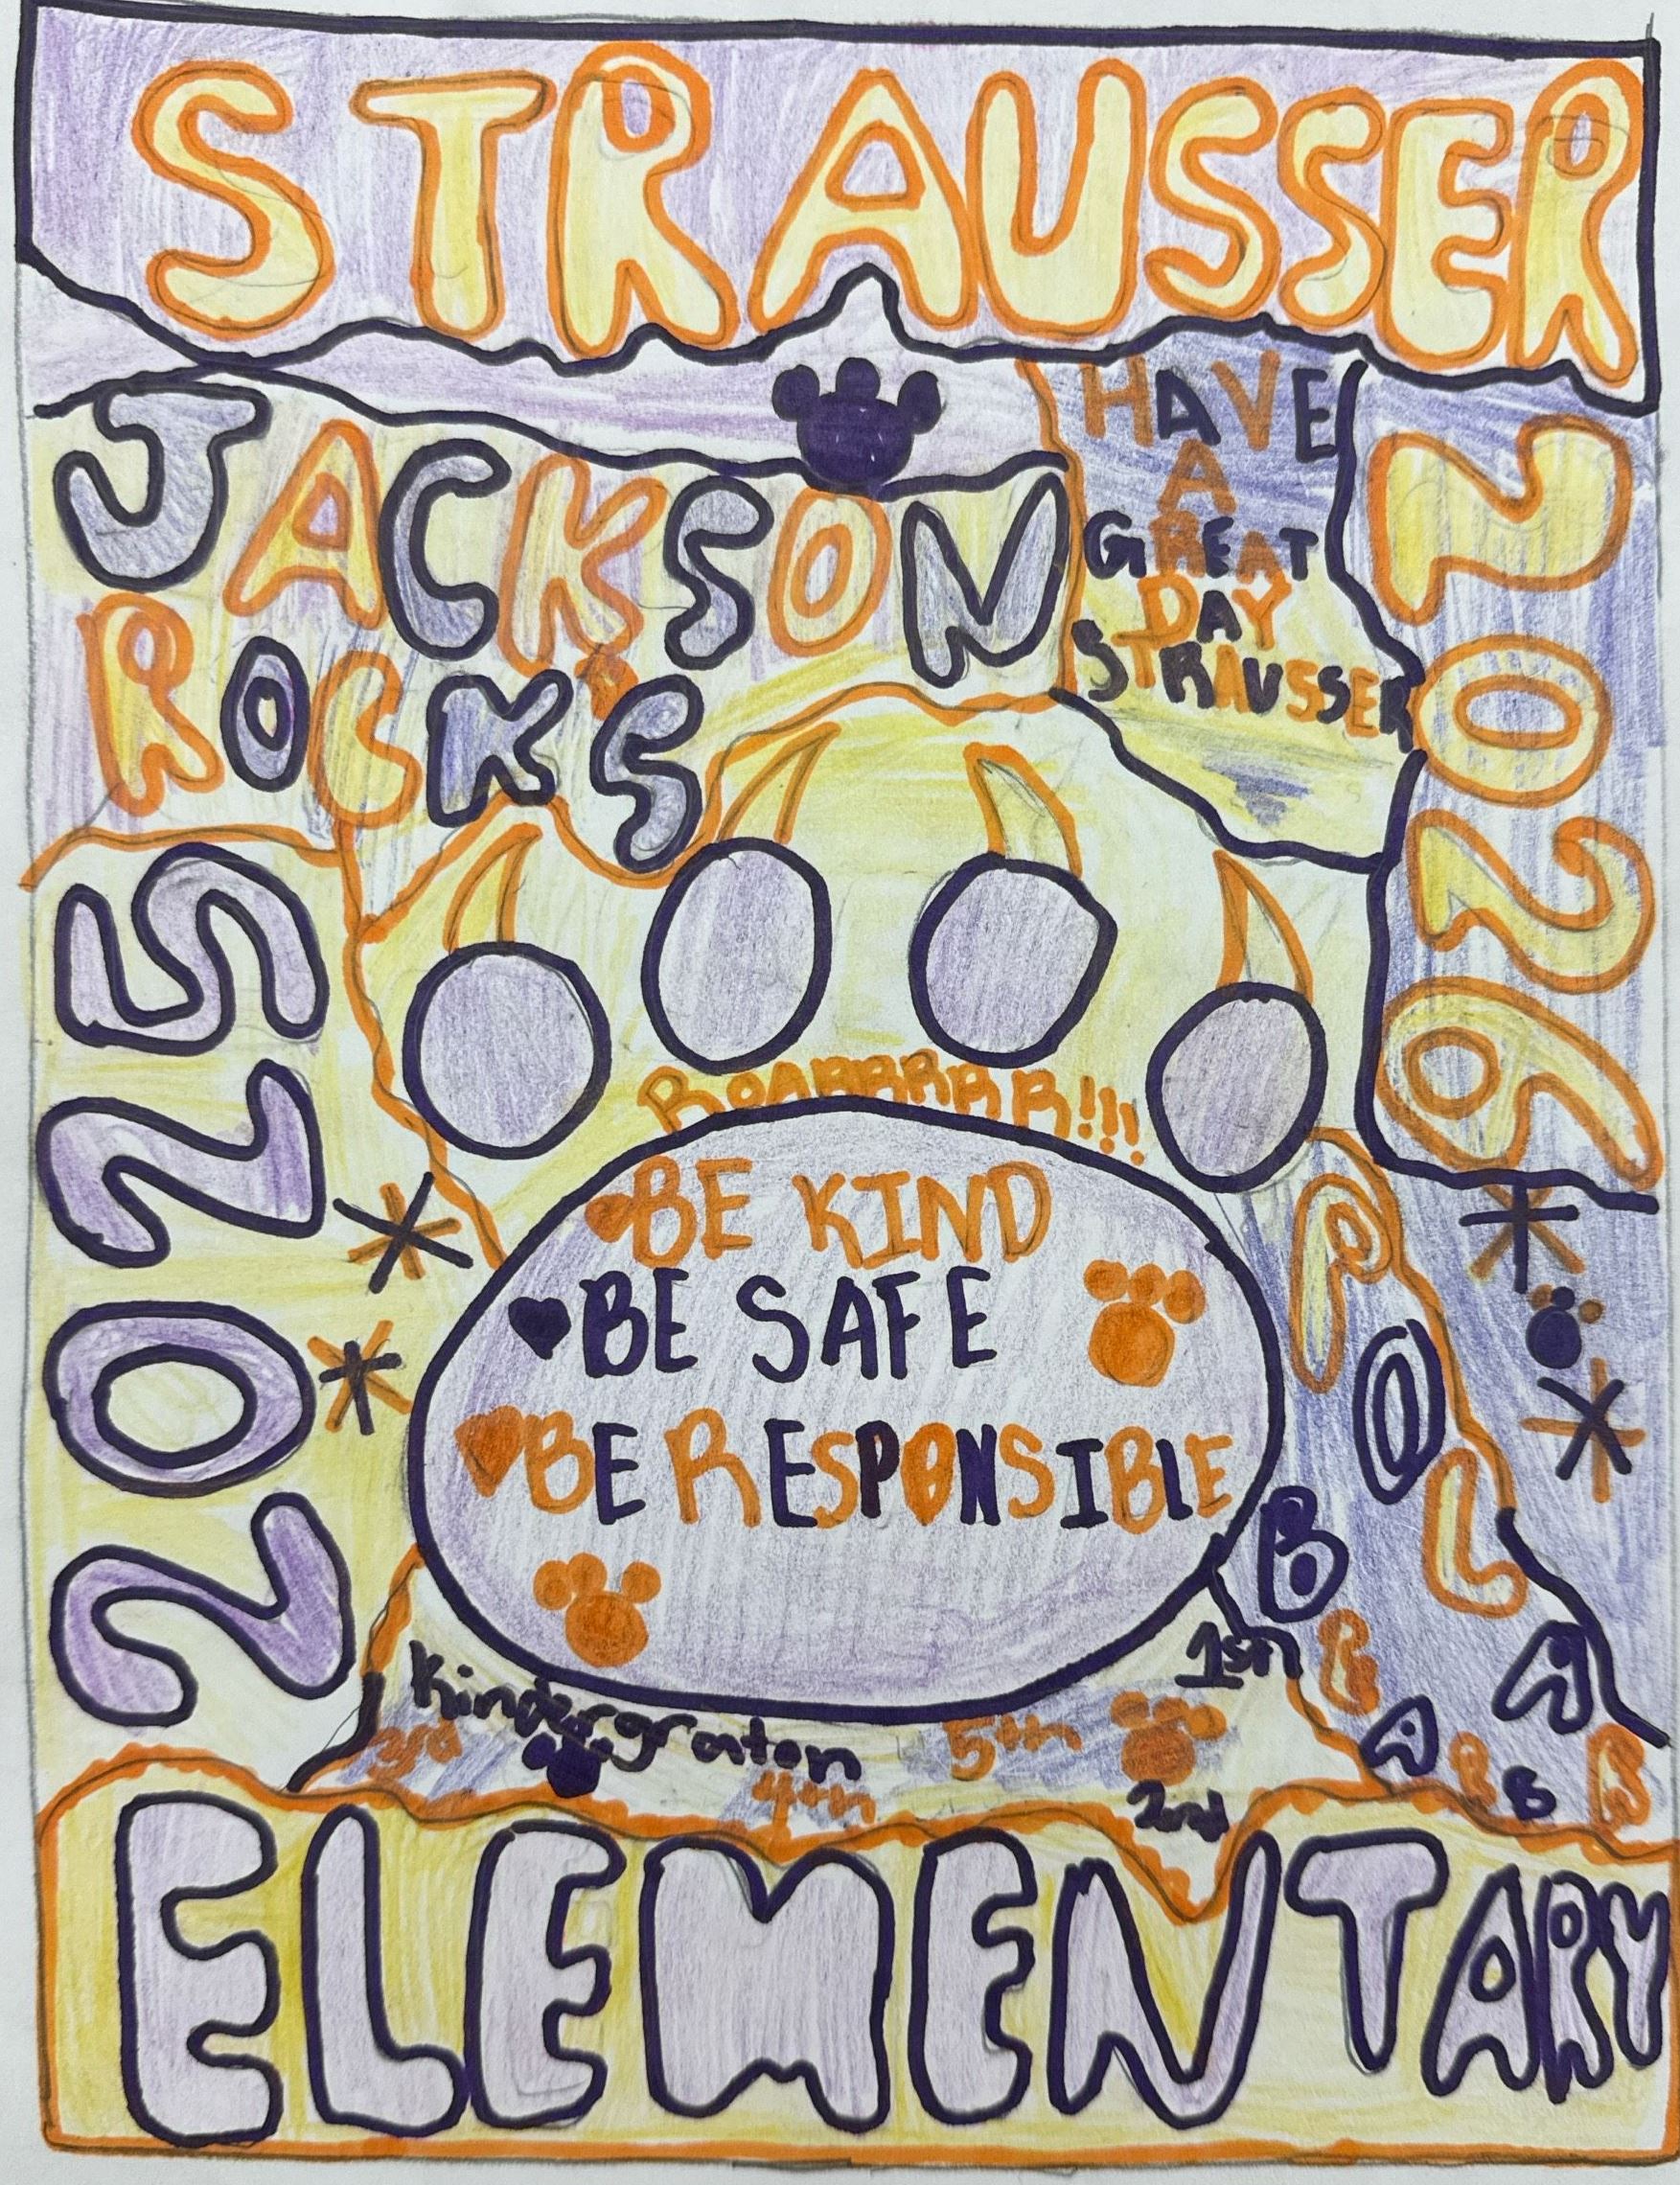 STRAUSSER
JACKSON
ROCKS
HAVE
A
GREAT
DAY
STRAUSSER
2025
2026
ROARRRRRR!!!
BE KIND
BE SAFE
BE RESPONSIBLE
POLA
BEAR
Kindergraton
1sn
3rd
4th
5th
2nd
ELEMENTARY